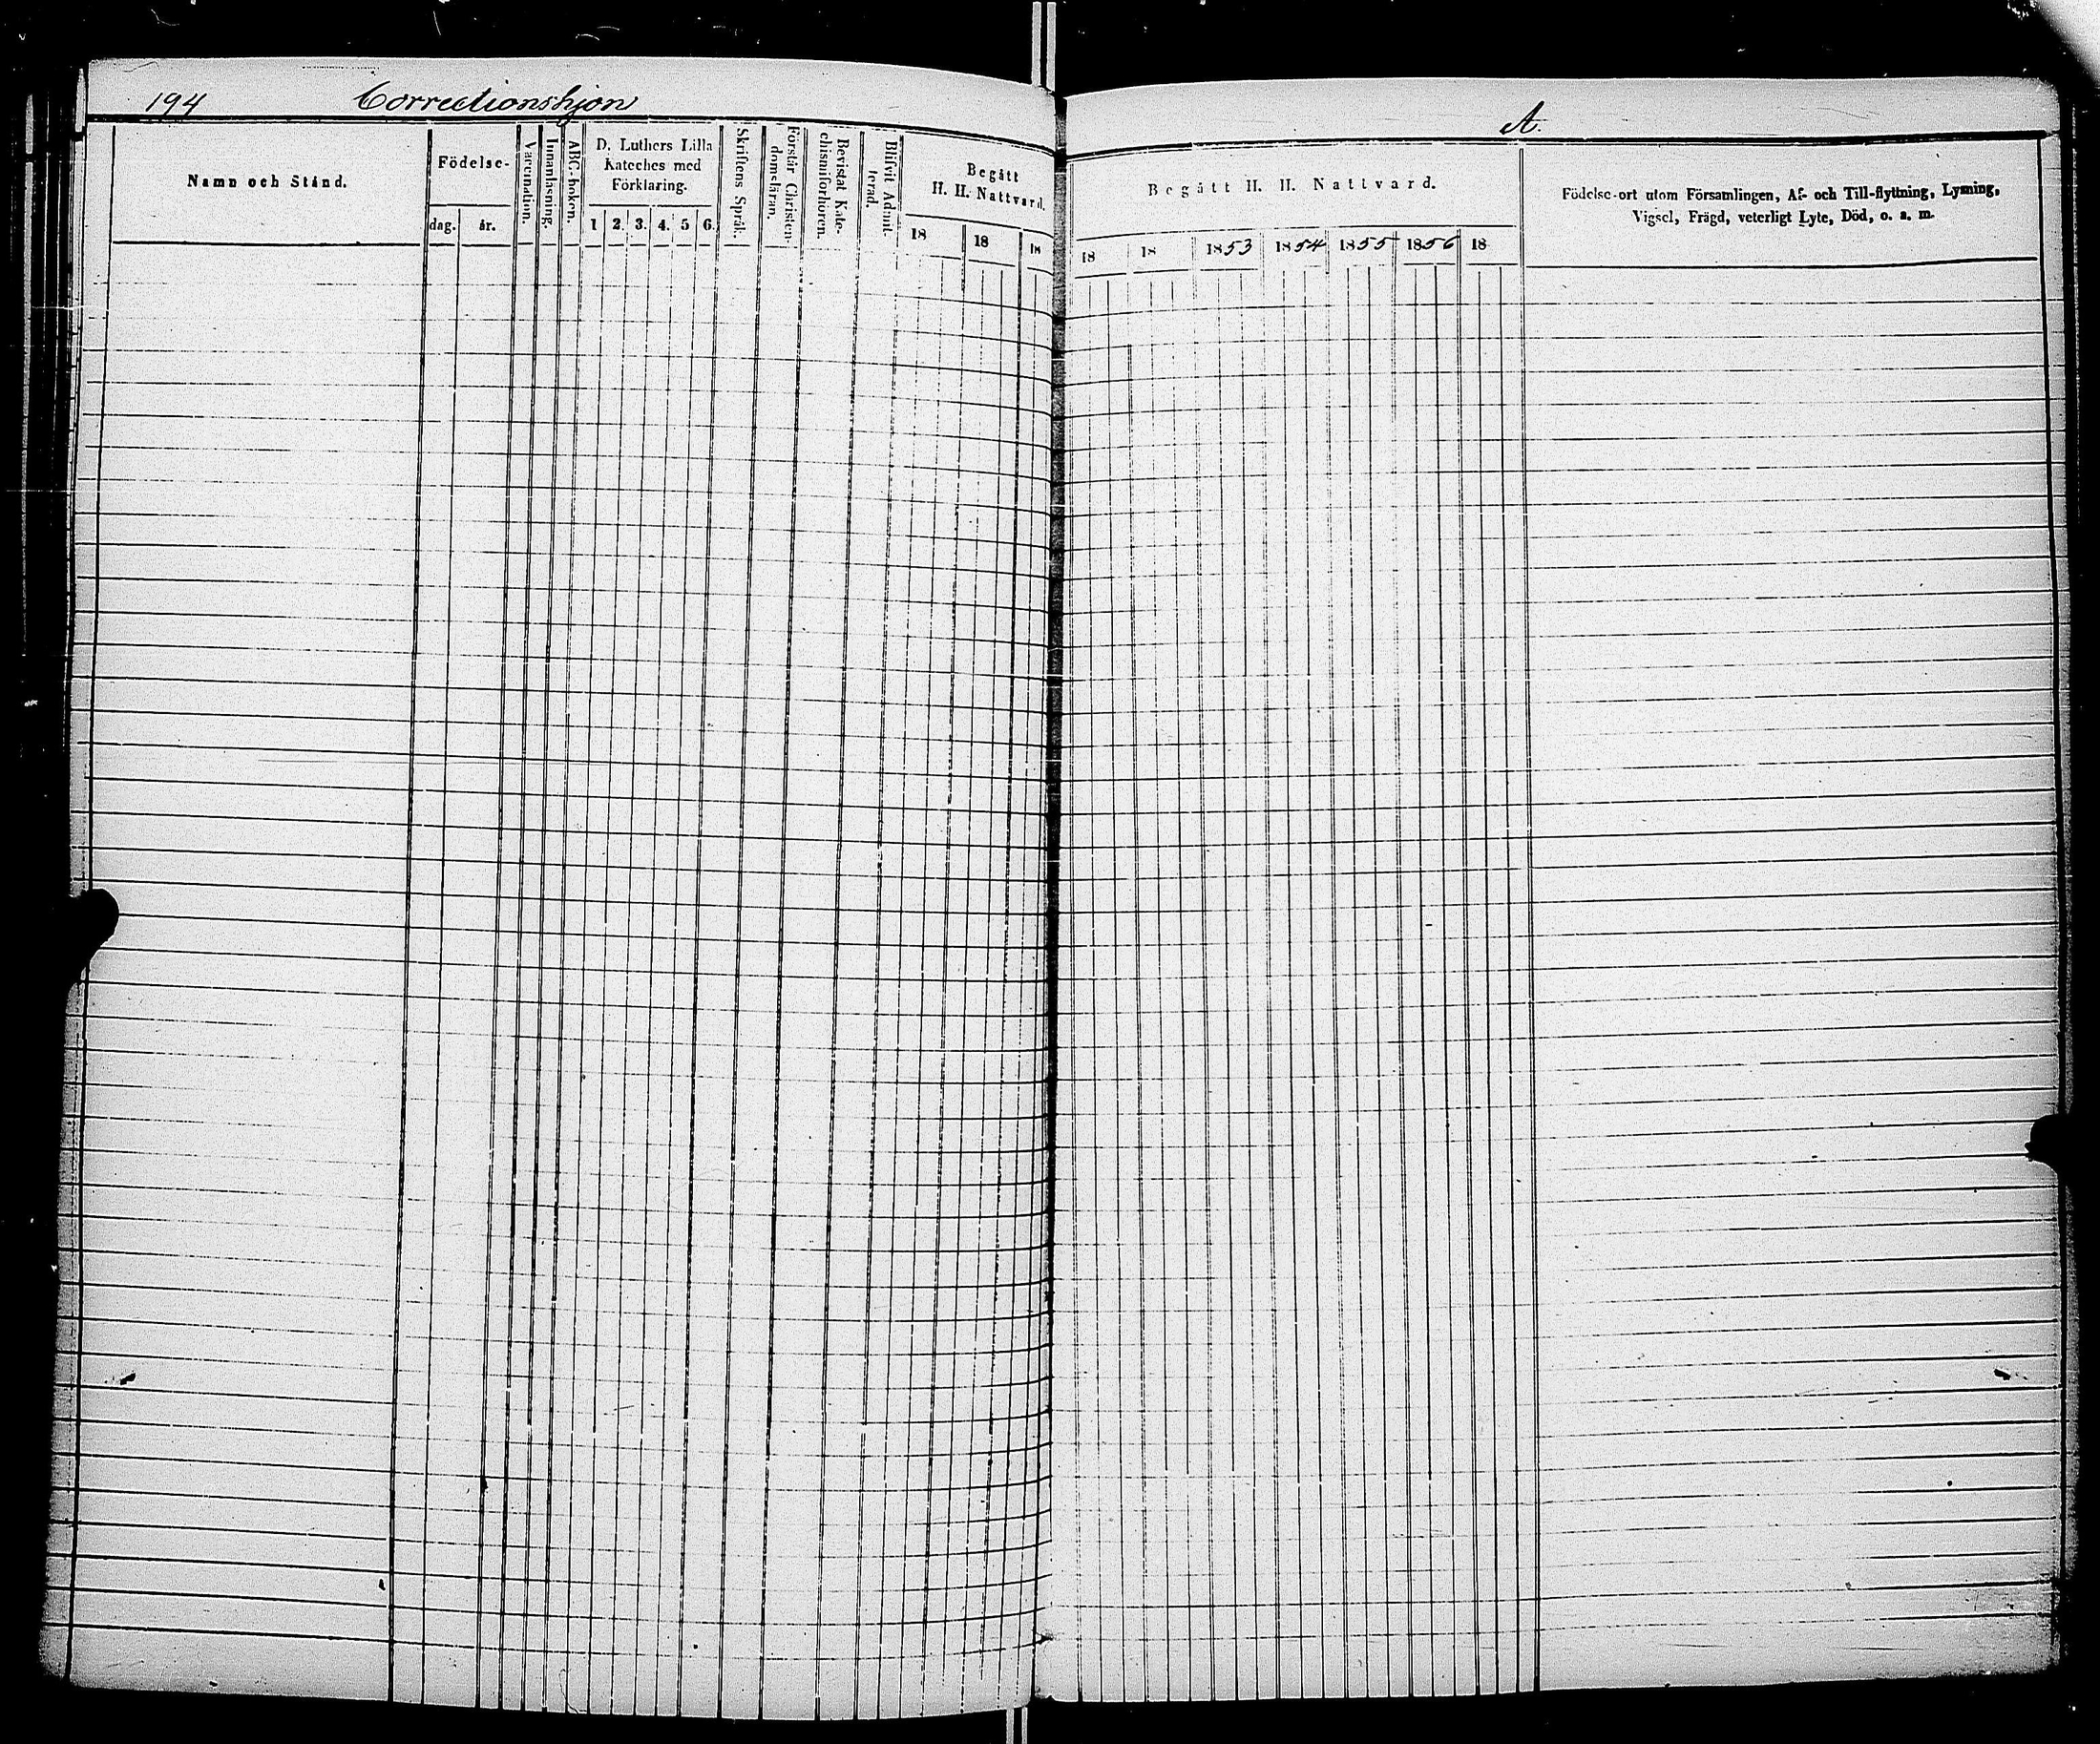 194 Correctionshjon
Namn och Stånd.
Födelse-
dag. år.
Vaccination.
Innanläsning.
ABC-boken.
D. Luthers Lilla
Kateches med
Förklaring.
1 2. 3. 4. 5 6.
Skriftens Språk.
Förstår Christen-
domsläran.
Bevistat Kate-
chismiförhören.
Blifvit Admit-
terad.
Begått
H. H. Nattvard.
18 18 18
A.
Begått H. H. Nattvard.
18 18 1853 1854 1855 1856 18
Födelse-ort utom Församlingen, Af- och Till-flyttning, Lysning,
Vigsel, Frägd, veterligt Lyte, Död, o. s. m.